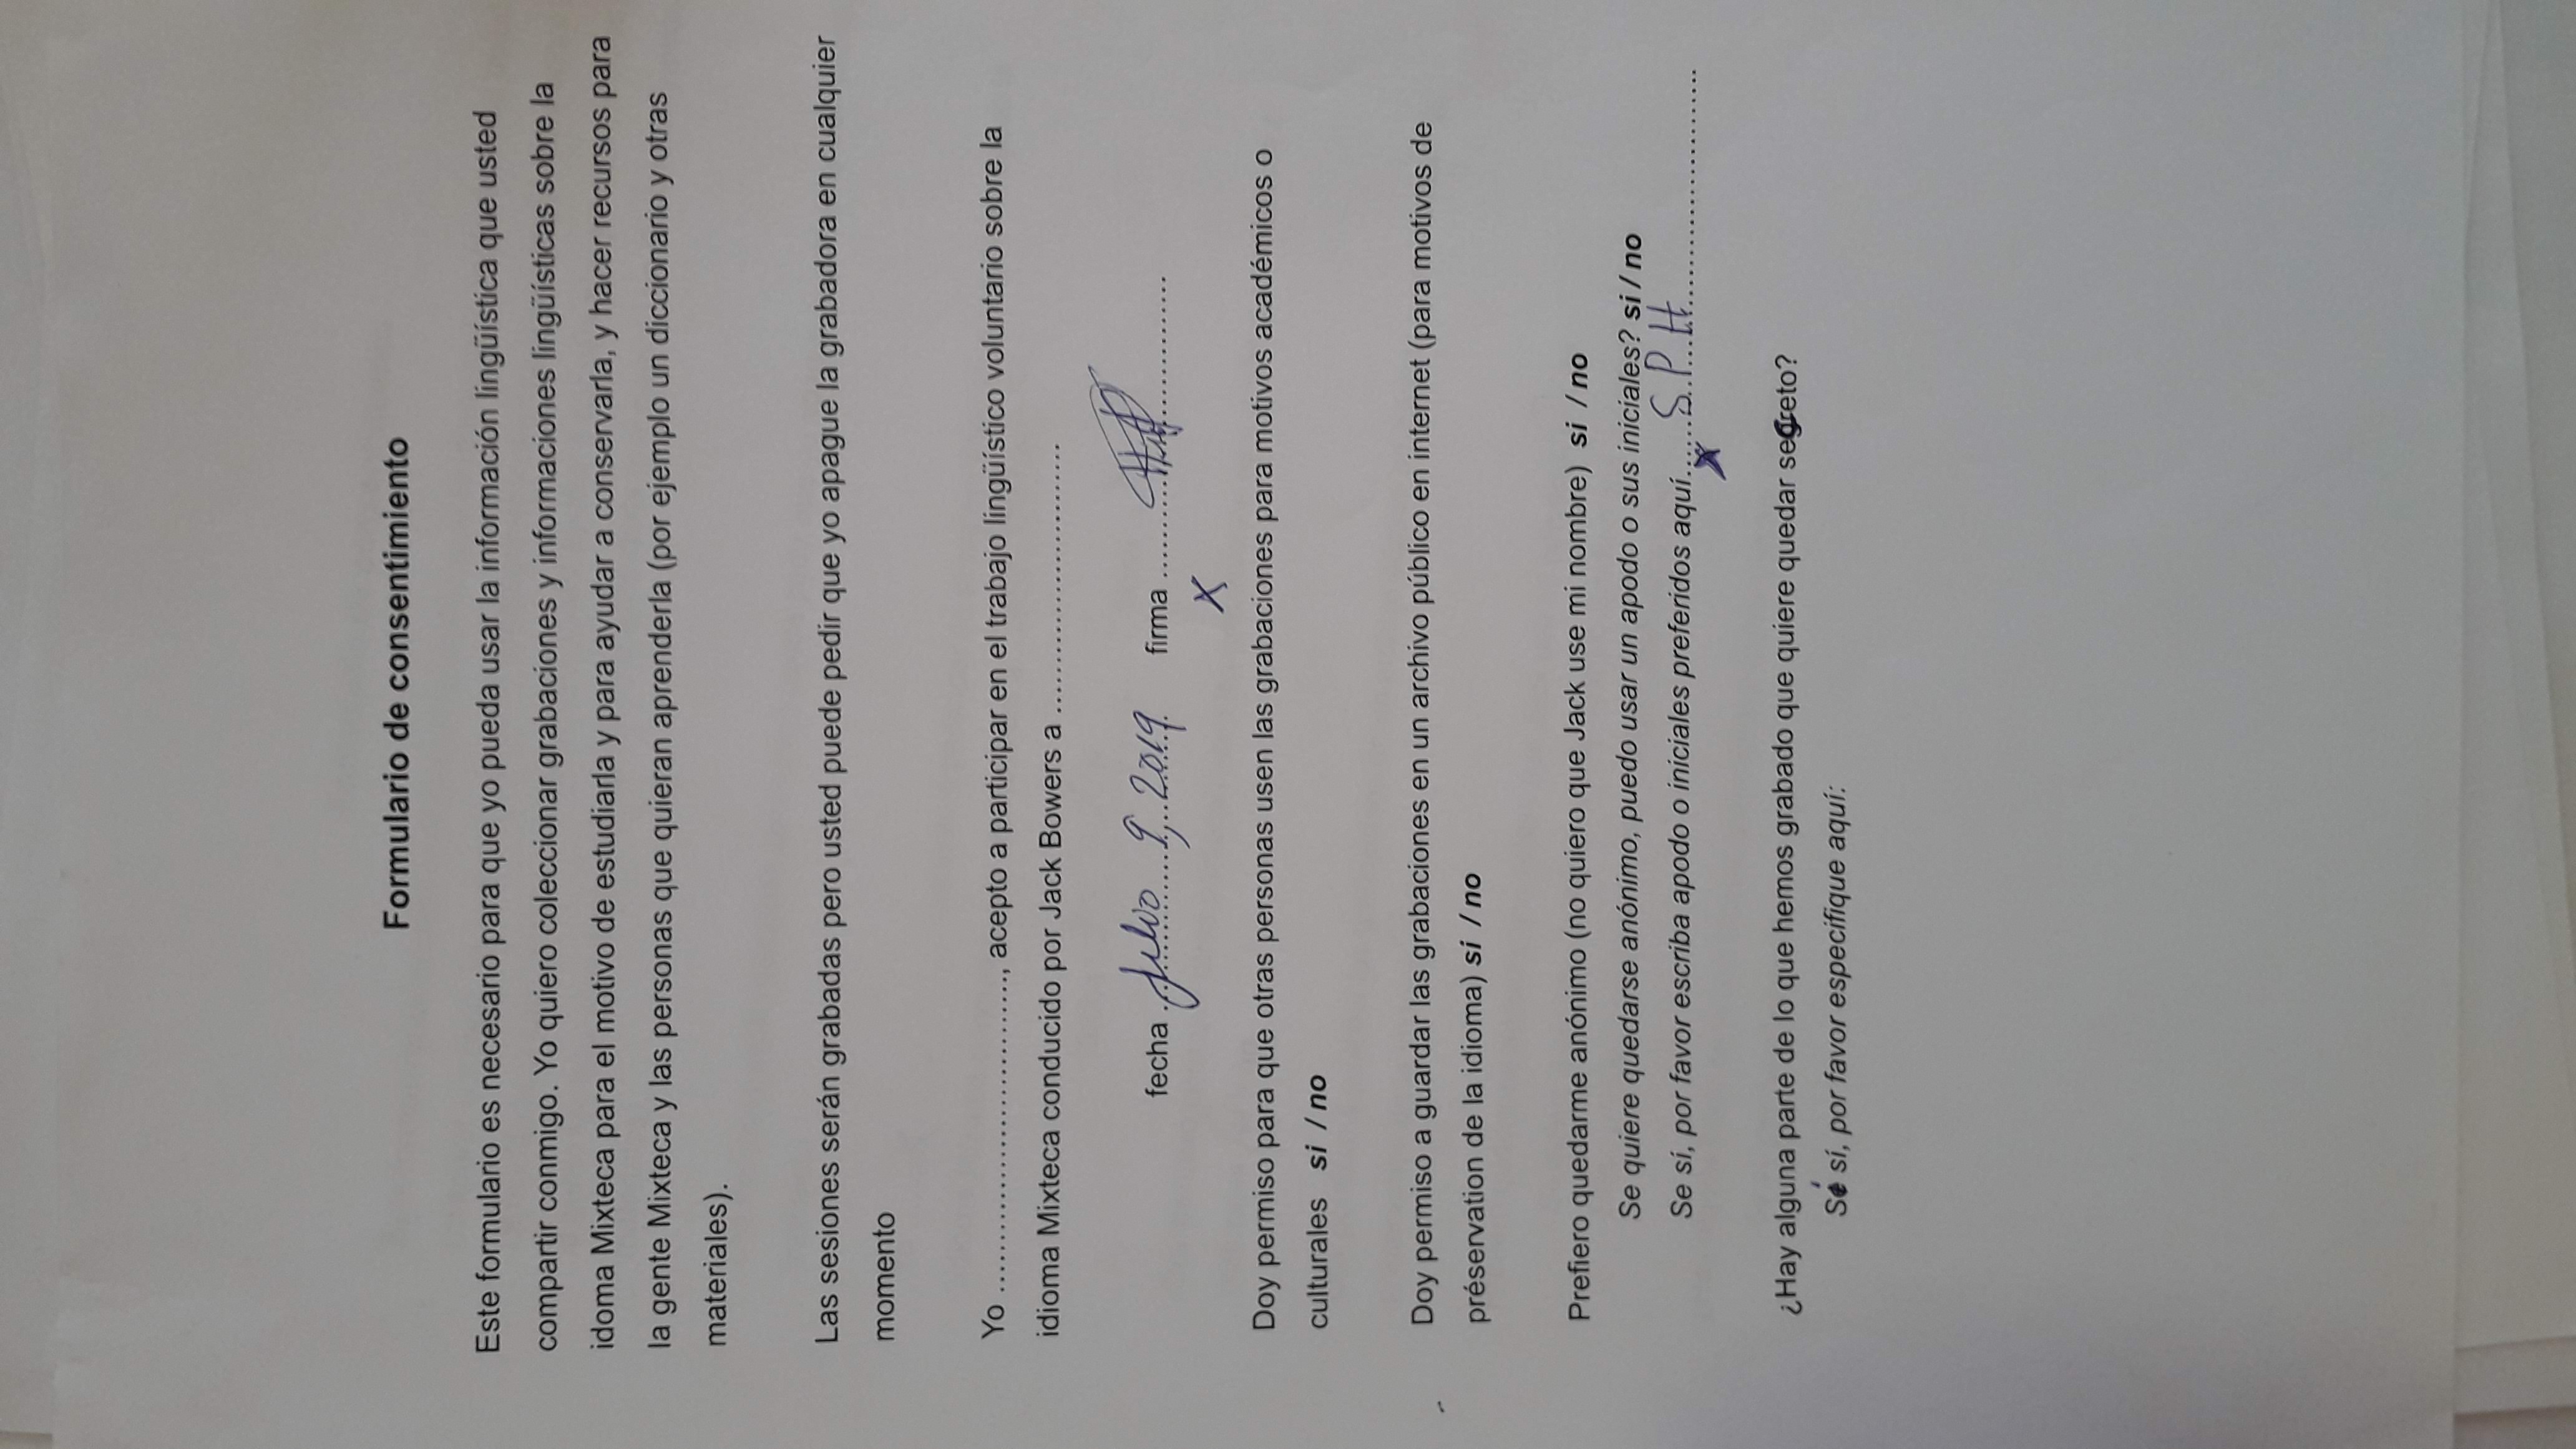 Formulario de consentimiento
Este formulario es necesario para que yo pueda usar la información lingüística que usted
compartir conmigo. Yo quiero coleccionar grabaciones y informaciones lingüísticas sobre la
idoma Mixteca para el motivo de estudiarla y para ayudar a conservarla, y hacer recursos para
la gente Mixteca y las personas que quieran aprenderla (por ejemplo un diccionario y otras
materiales).
Las sesiones serán grabadas pero usted puede pedir que yo apague la grabadora en cualquier
momento
Yo ..............................., acepto a participar en el trabajo lingüístico voluntario sobre la
idioma Mixteca conducido por Jack Bowers a ...........................
fecha Julio 9, 2019 firma ...........................
X
Doy permiso para que otras personas usen las grabaciones para motivos académicos o
culturales si / no
Doy permiso a guardar las grabaciones en un archivo público en internet (para motivos de
préservation de la idioma) si / no
Prefiero quedarme anónimo (no quiero que Jack use mi nombre) si / no
Se quiere quedarse anónimo, puedo usar un apodo o sus iniciales? si / no
Se si, por favor escriba apodo o iniciales preferidos aquí...... S.P.H. .....................
X
¿Hay alguna parte de lo que hemos grabado que quiere quedar secreto?
Sí sí, por favor especifique aquí: